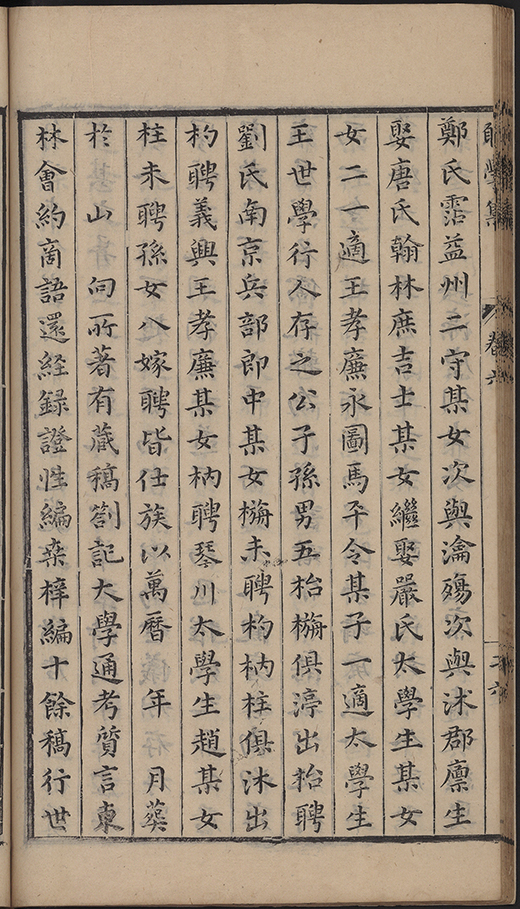 卷六
二六
鄭氏霑益州二守某女次與瀹殤次與沭郡廩生
娶唐氏翰林庶吉士某女繼娶嚴氏太學生某女
女二一適王孝廉永圖馬平令某子一適太學生
王世學行人存之公子孫男五枱橗俱渟出枱聘
劉氏南京兵部郎中某女橗未聘杓枘柱俱沭出
杓聘義興王孝廉某女枘聘琴川太學生趙某女
柱未聘孫女八嫁聘皆仕族以萬曆 年 月葬
於 山 向所著有藏稿劄記大學通考質言東
林會約商語還経録證性編桒梓編十餘稿行世